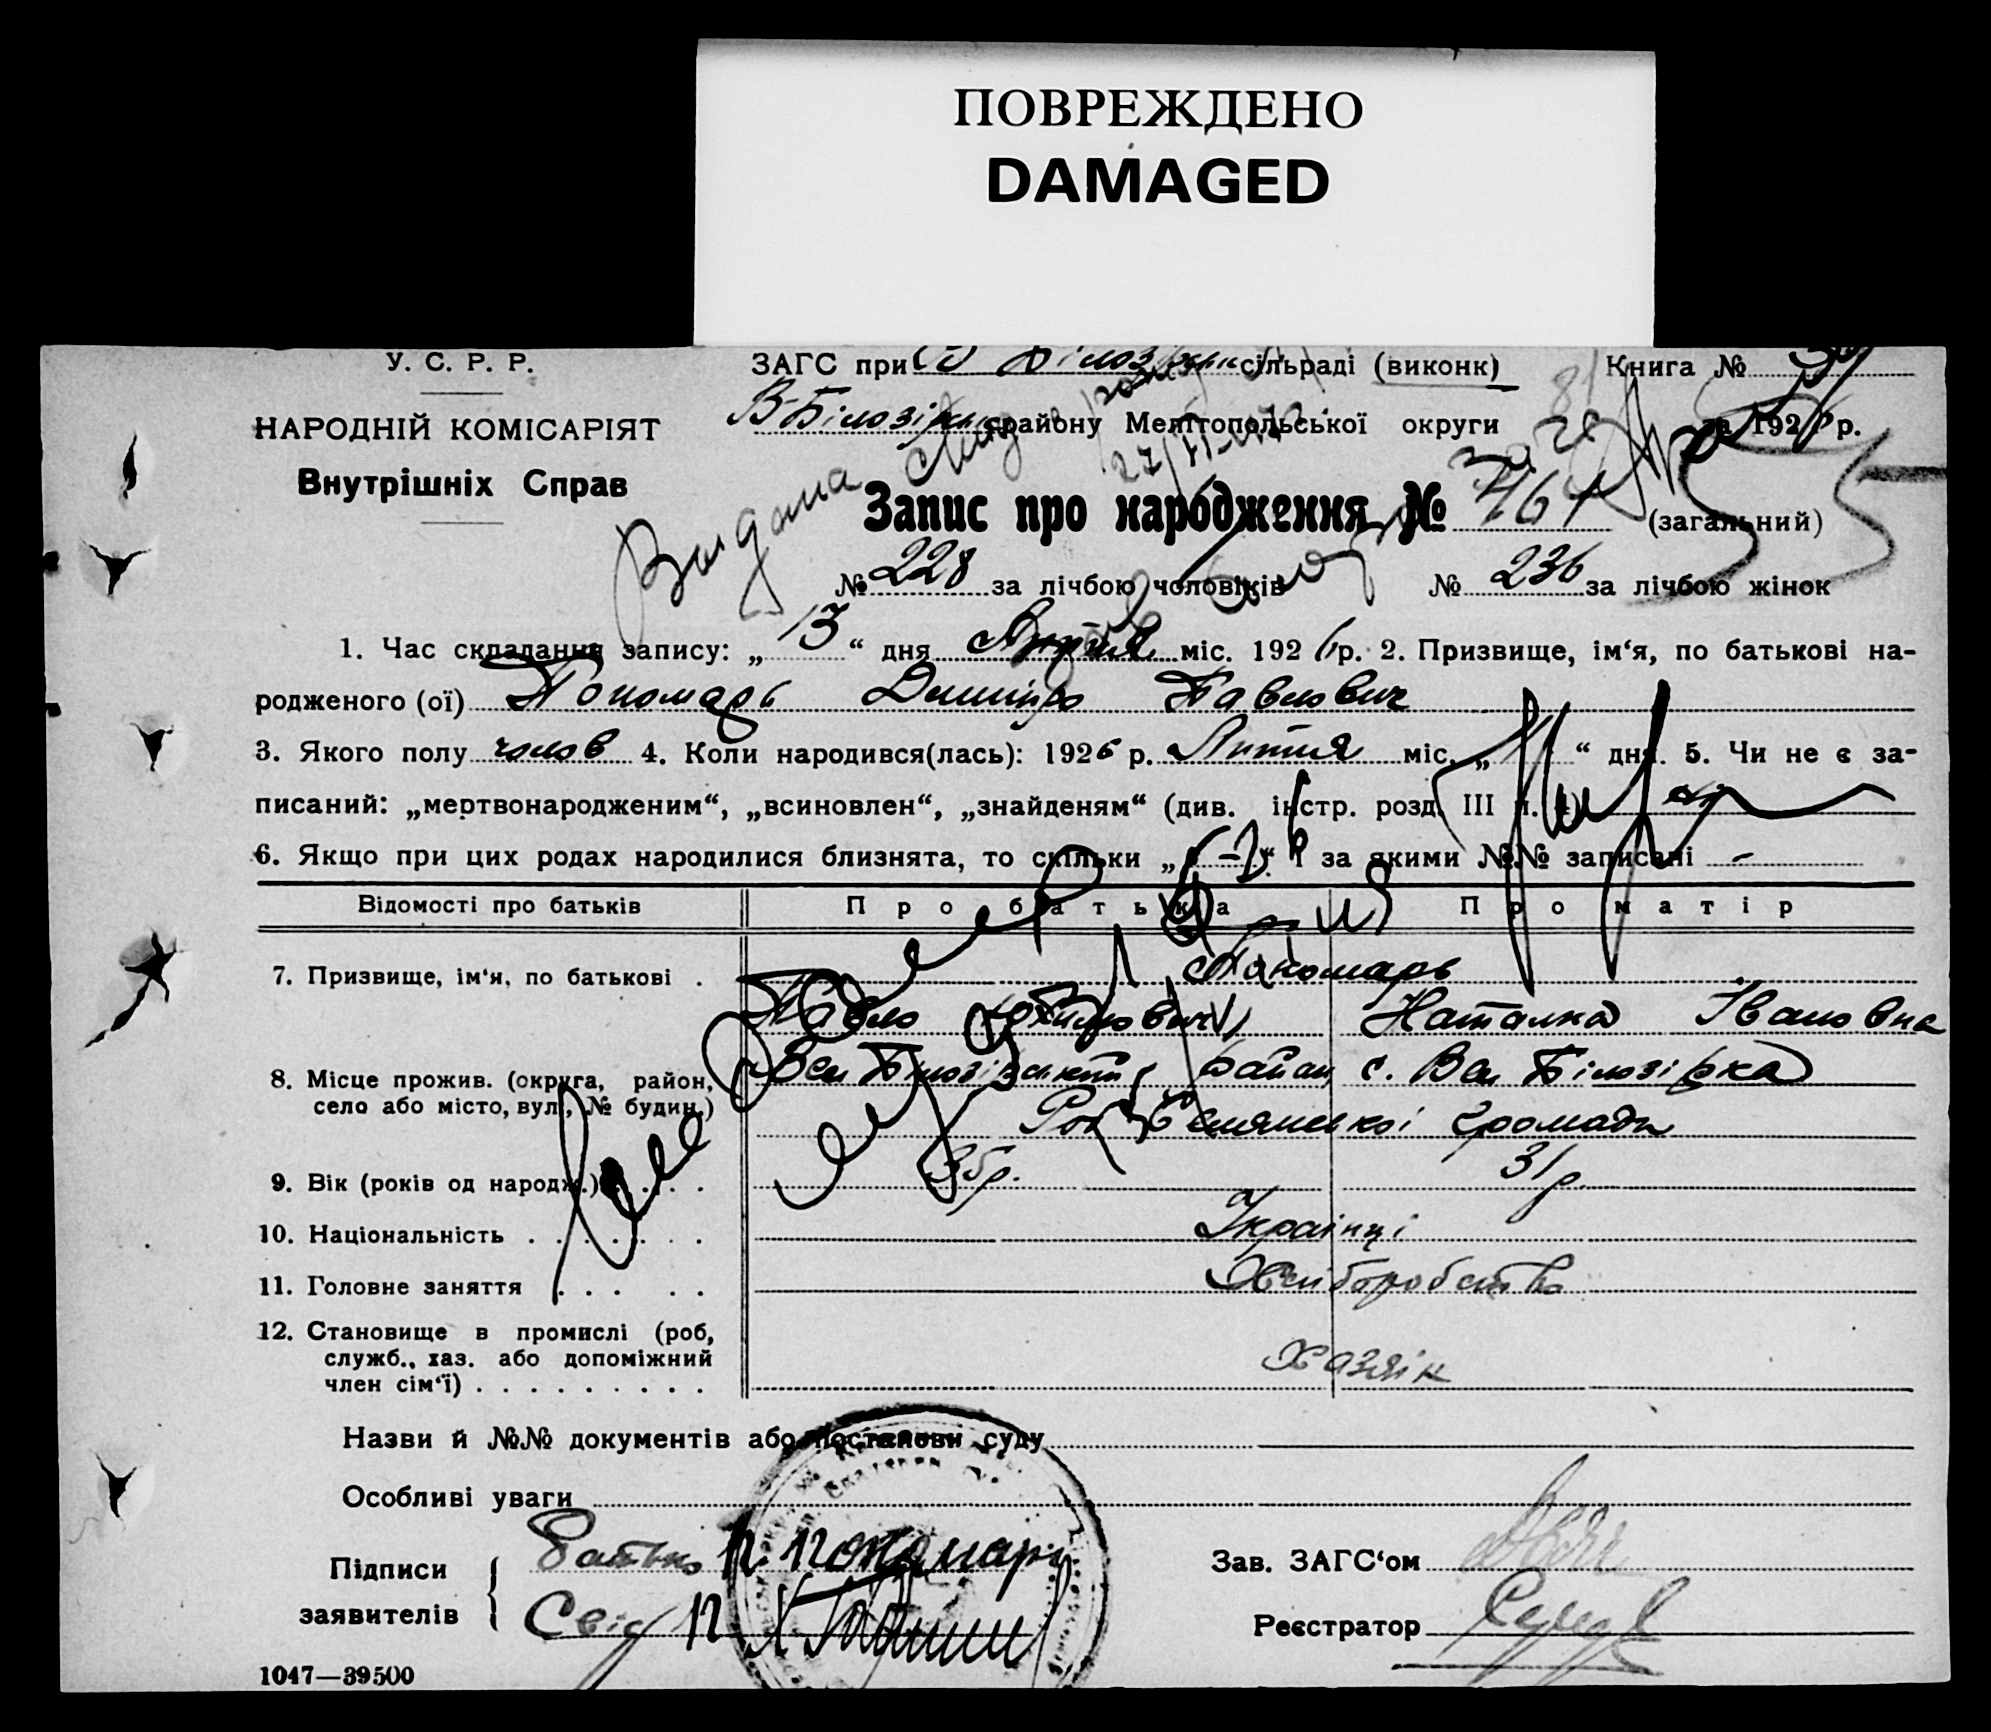 ПОВРЕЖДЕНО
DAMAGED
У. С. Р. Р.
ЗАГС при В Білозірк сільраді (виконк) Книга №
НАРОДНІЙ КОМІСАРІЯТ
В-Білозірк району Мелітопольської округи за 1926 р.
Внутрішніх Справ
Видана
27/VI
Запис про народження № 461 (загальний)
№ 228 за лічбою чоловіків № 236 за лічбою жінок
1. Час складання запису: „13“ дня Липня міс. 1926 р. 2. Призвище, ім‘я, по батькові на-
родженого (ої) Пономарь Дмитро Павлович
3. Якого полу чолов 4. Коли народився(лась): 1926 р. Липня міс. „ “ дня. 5. Чи не є за-
писаний: „мертвонародженим“, „всиновлен“, „знайденям“ (див. інстр. розд. III п. 4)
6. Якщо при цих родах народилися близнята, то скільки „ - “ і за якими №№ записані -
Відомості про батьків Про батька Про матір
7. Призвище, ім‘я, по батькові . Пономарь
Павло Юхимович Наталка Івановна
8. Місце прожив. (округа, район, село або місто, вул., № будин.) Вел Білозірський район с. Вел Білозірка
Громади
9. Вік (років од народж.) . . . 35р. 31р
10. Національність . . . . . . . Українці
11. Головне заняття . . . . . Хліборобство
12. Становище в промислі (роб,
служб., хаз. або допоміжний
член сім‘ї) . . . . . . . . . Хазяїн
Назви й №№ документів або постанови суду
Особливі уваги
Підписи заявителів { Батько П. Пономарь Зав. ЗАГС‘ом
Свід Реєстратор
1047—39500